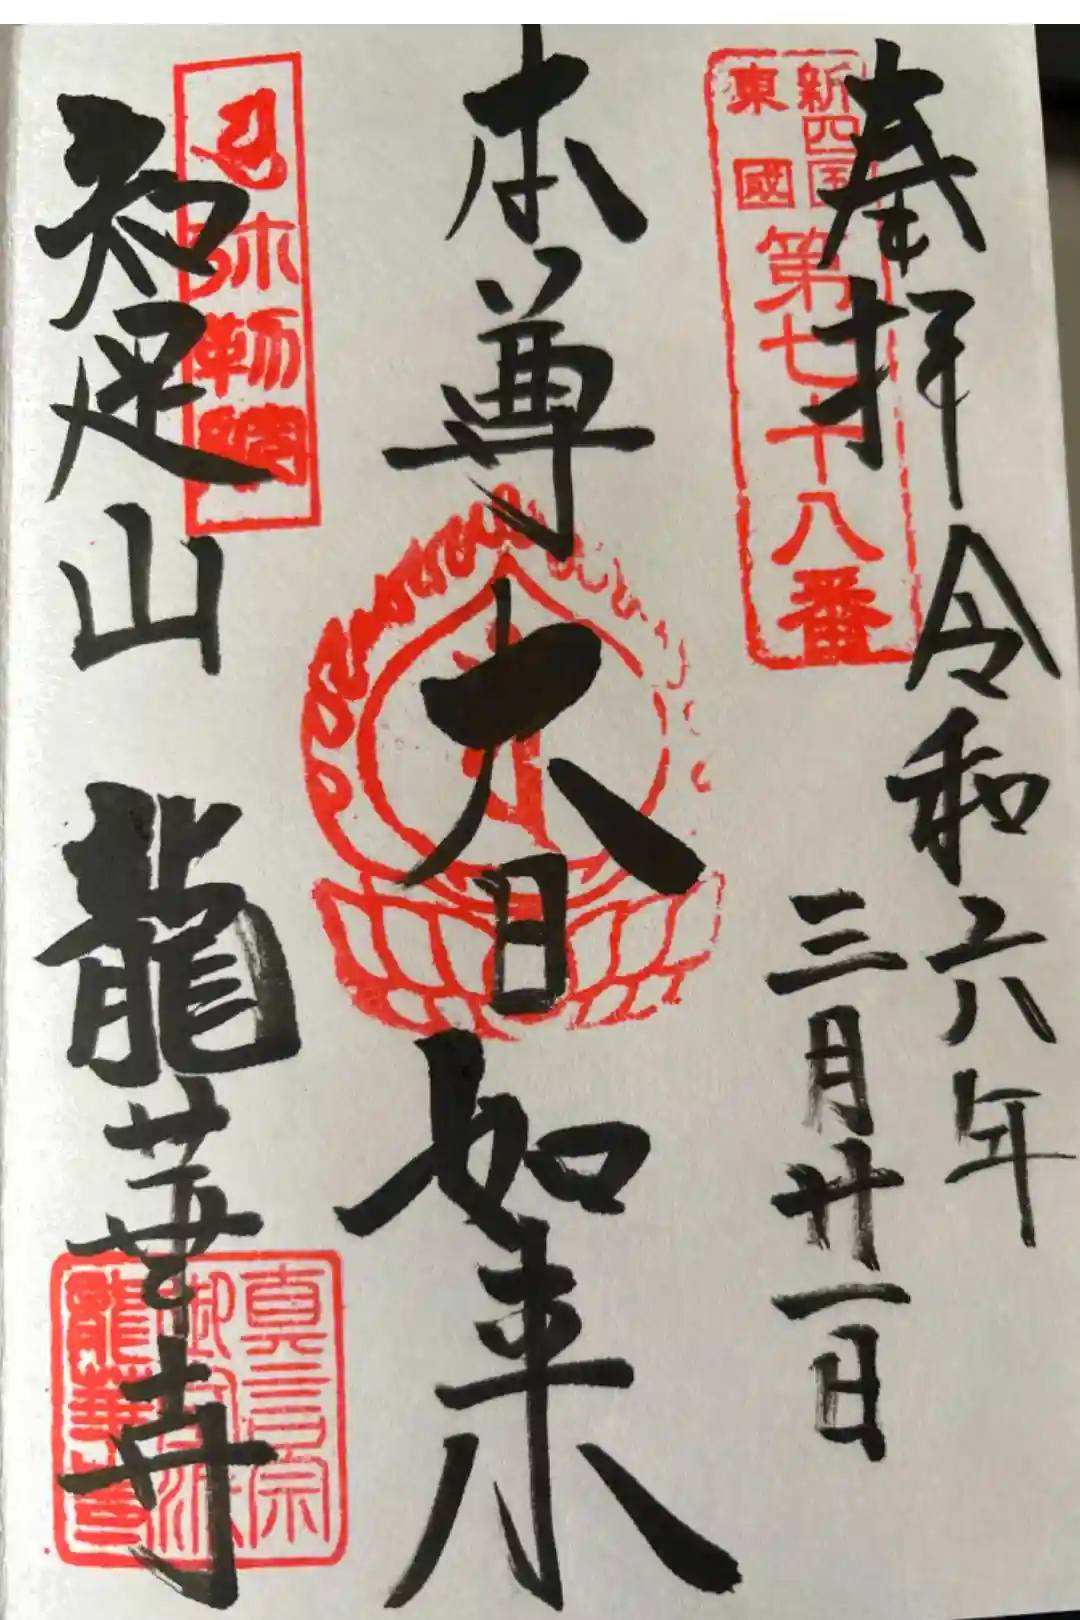 奉拝 令和六年
三月廿一日
新四国
東國
第七十八番
本尊 大日如来
弥勒閣
知足山 龍華寺
真言宗
御室派
龍華寺